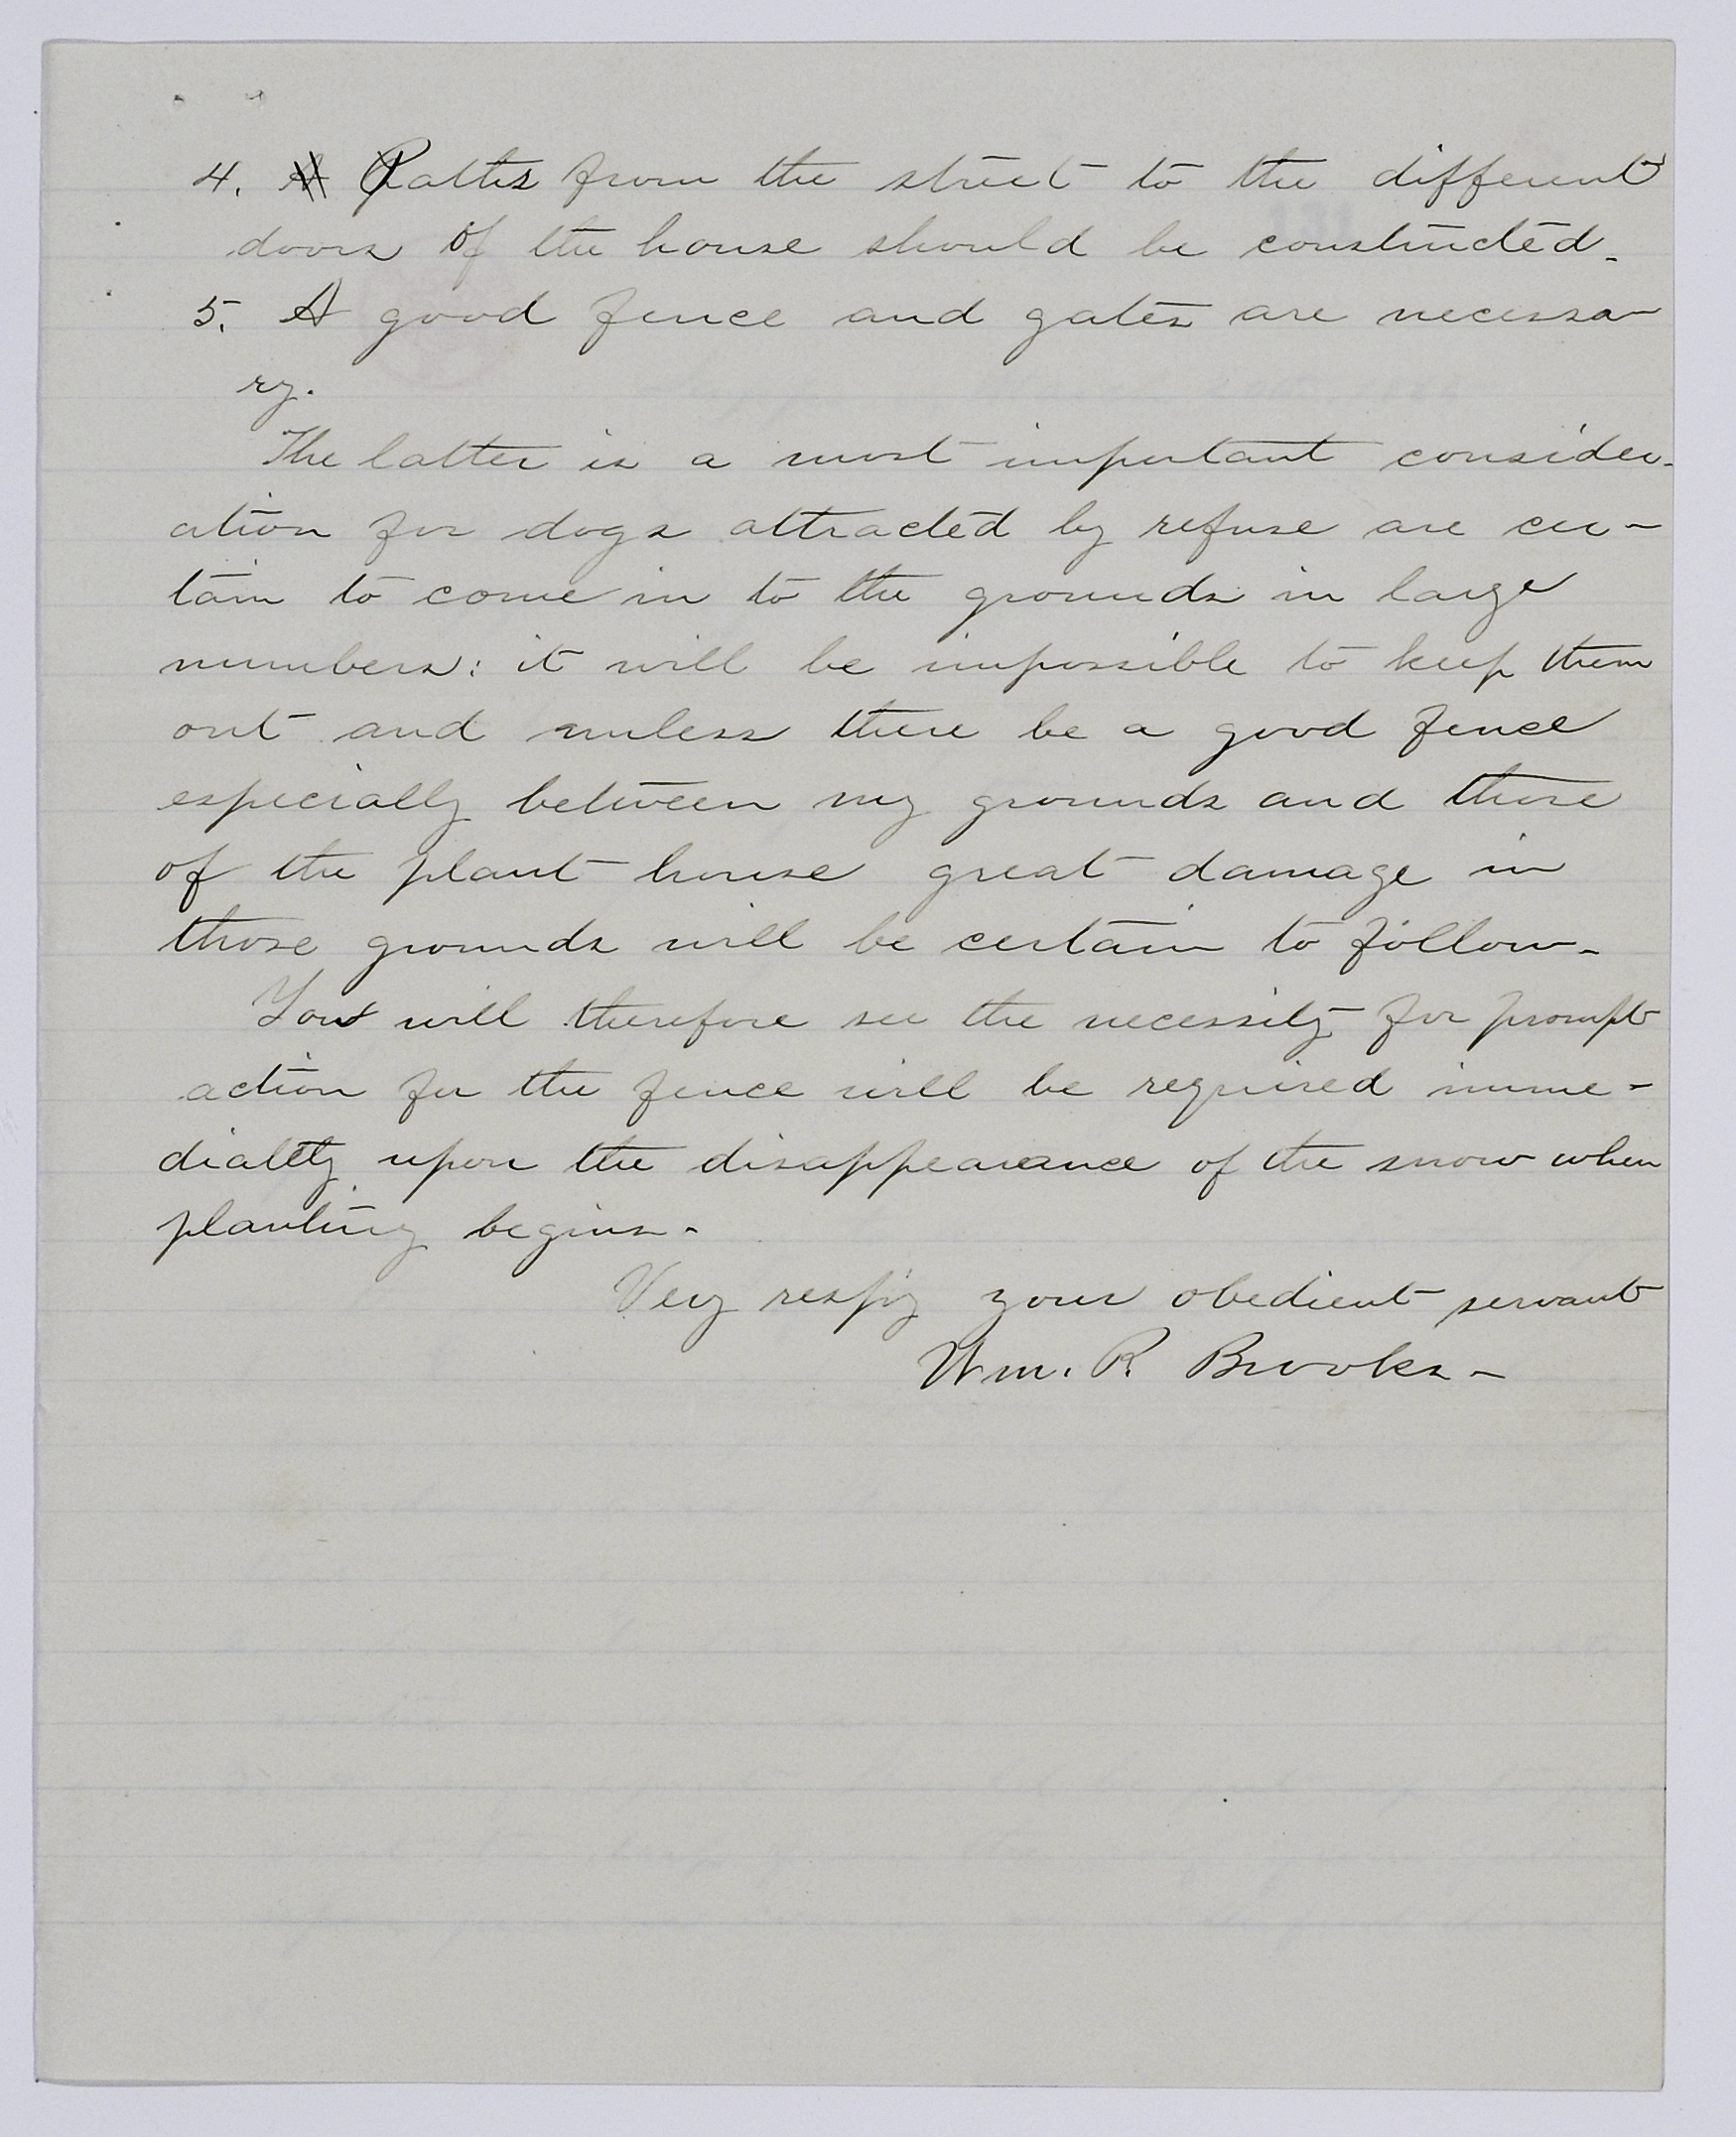 4. Paths from the street to the different
doors of the house should be constructed.
5. A good fence and gates are necessa-
ry.
The latter is a most important consider-
ation for dogs attracted by refuse are cer-
tain to come in to the grounds in large
numbers: it will be impossible to keep them
out and unless there be a good fence
especially between my grounds and those
of the plant house great damage in
those grounds will be certain to follow.
You will therefore see the necessity for prompt
action for the fence will be required imme-
diatly upon the disappearance of the snow when
planting begins.
Very resp'y your obedient servant
Wm. R. Brooks.